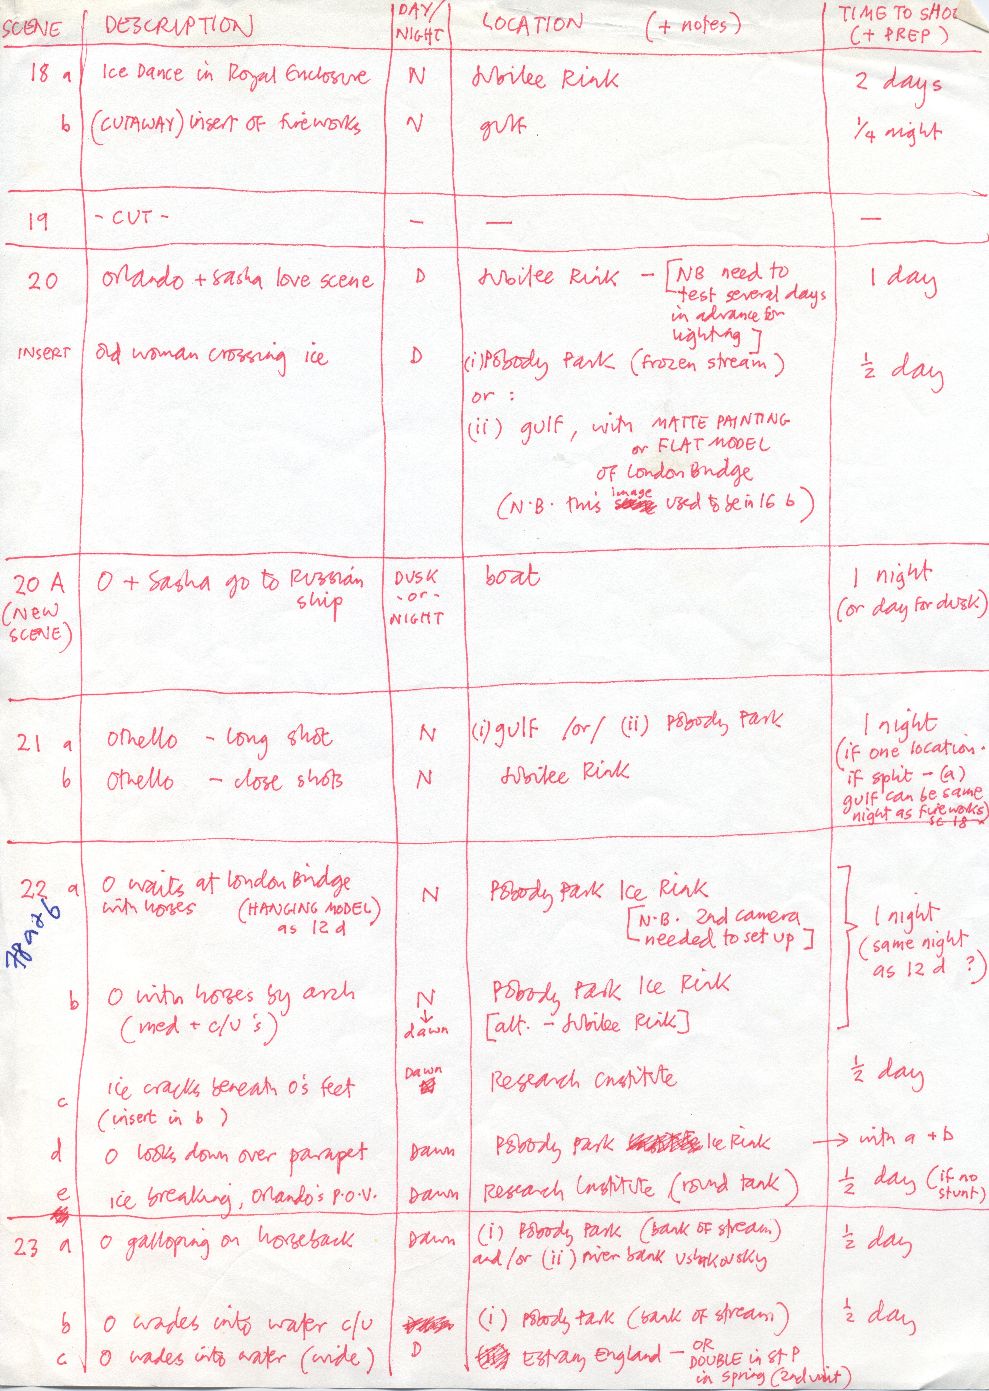 SCENE DESCRIPTION DAY/NIGHT LOCATION (+ notes) TIME TO SHOOT (+ PREP)
18 a Ice Dance in Royal Enclosure N Jubilee Rink 2 days
b (CUTAWAY) insert of fireworks N gulf 1/4 night
19 - CUT - — — —
20 Orlando + Sasha love scene D Jubilee Rink - [NB need to 1 day
test several days
in advance for
lighting]
INSERT old woman crossing ice D (i) Pobody Park (frozen stream) 1/2 day
or :
(ii) gulf, with MATTE PAINTING
or FLAT MODEL
of London Bridge
(N.B. this image used to be in 16 b)
20 A O + Sasha go to Russian DUSK boat 1 night
(NEW ship -or- (or day for dusk)
SCENE) NIGHT
21 a Othello - long shot N (i) gulf /or/ (ii) Pobody Park 1 night
(if one location.
b Othello - close shots N Jubilee Rink if split - (a)
gulf can be same
night as fireworks)
sc 18
22 a O waits at London Bridge N Pobody Park Ice Rink 1 night
with horses (HANGING MODEL) [N.B. 2nd camera (same night
as 12 d needed to set up] as 12 d ?)
b O with horses by arch N Pobody Park Ice Rink
(med + c/u's) ↓ dawn [alt. - Jubilee Rink]
c ice cracks beneath O's feet Dawn Research Institute 1/2 day
(insert in b)
d O looks down over parapet Dawn Pobody Park Ice Rink → with a + b
e ice breaking, Orlando's P.O.V. Dawn Research Institute (round tank) 1/2 day (if no
stunt)
23 a O galloping on horseback Dawn (i) Pobody Park (bank of stream) 1/2 day
and/or (ii) river bank Ushkovsky
b O wades into water c/u (i) Pobody Park (bank of stream) 1/2 day
c O wades into water (wide) D England - OR
DOUBLE in St P
in spring (2nd visit)